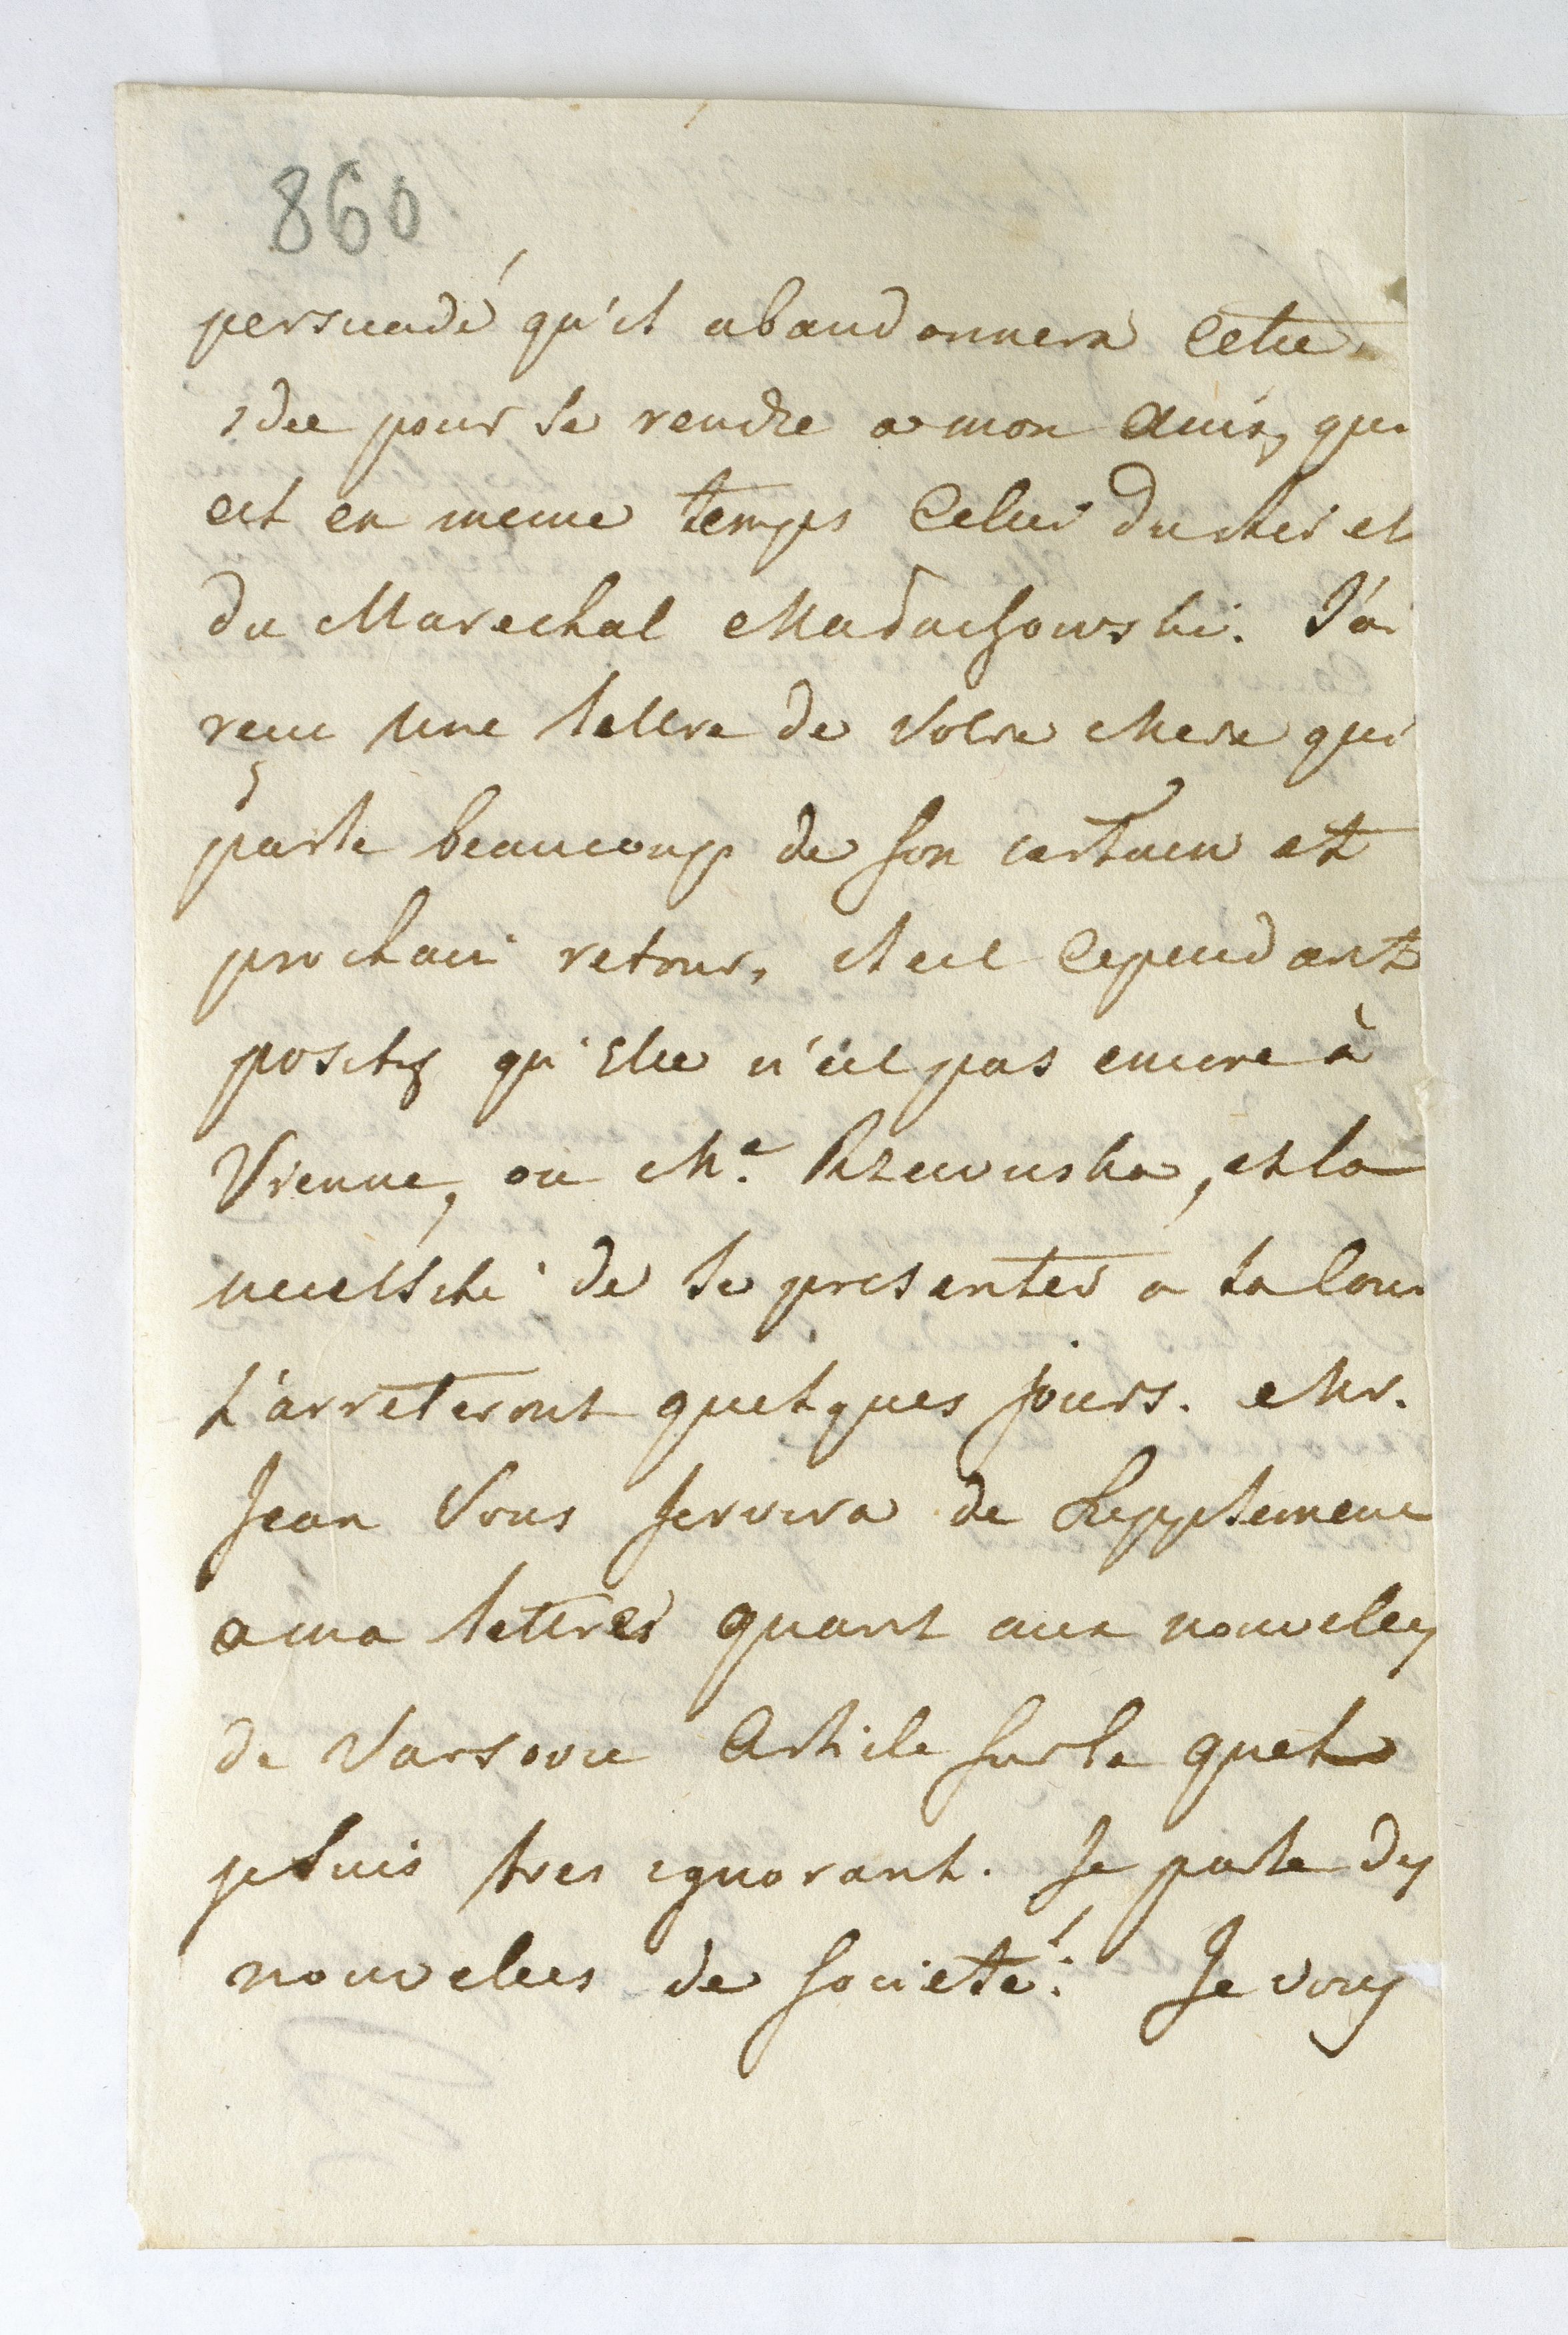 860
persuadé qu'il abandonnera Cette
idee pour se rendre a mon Avis, qui
est en meme temps Celui du et
du Marechal Malachowski. J'ai
recu Une lettre de Votre Mere qui
parle beaucoup de son certain et
prochain retour, Il est Cependant
positif qu'Elle n'est pas encore à
Vienne, ou Me. Rzewuska, et la
necessité de se presenter a la Cour
l'arreteront quelques jours. Mr.
Jean Vous servira de Supplement
a ma lettres quant aux nouvelles
de Varsovie Article sur le quel
je suis tres ignorant. Je parle des
nouvelles de societé. Je vous